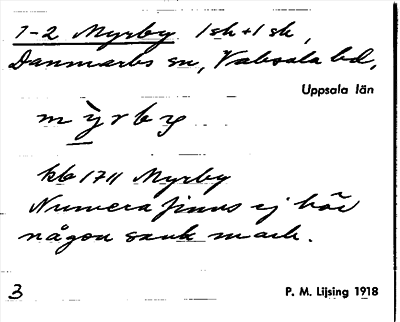 1-2 Myrby 1 sk + 1 sk,
Danmarks sn, Vaksala hd,
Uppsala län
mỳrby
kb 1711 Myrby
Numera finns ej här
någon sank mark.
3 P. M. Lijsing 1918